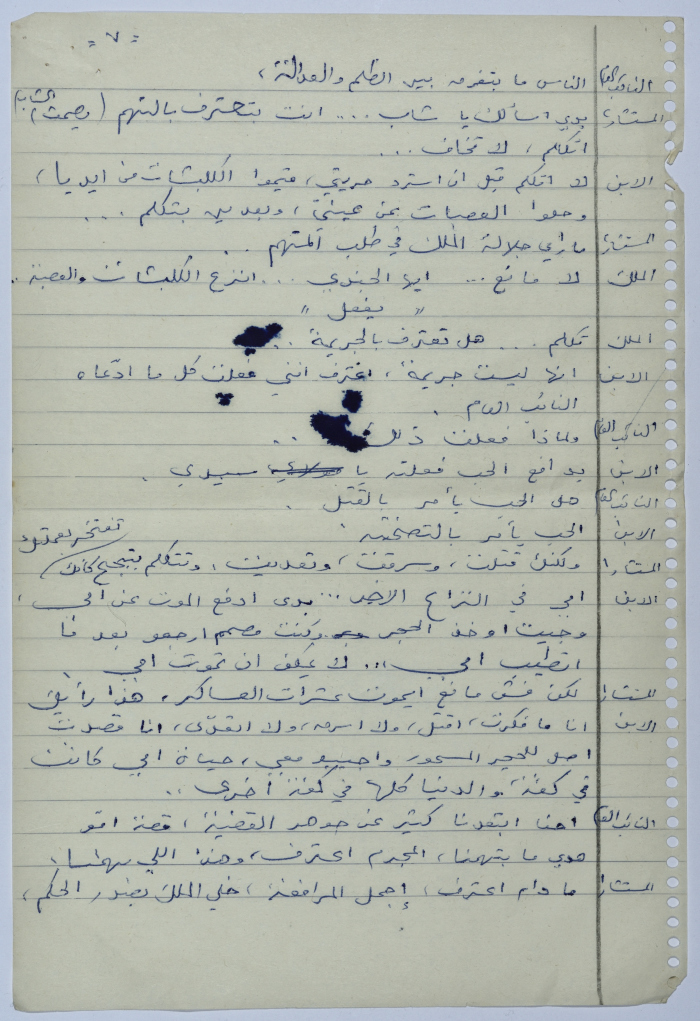 = ٧ =
النائب العام الناس ما بتفرق بين الظلم والعدالة ،
المستشار بدي اسألك يا شاب ... انت بتعترف بالتهم ( يصمت الشاب )
اتكلم ، لا تخاف ...
الابن لا اتكلم قبل ان استرد حريتي ، قيموا الكلبشات من ايديا ،
وحلوا العصبات عن عينيّ ، وبعدين بتكلم ...
المستشار ما رأي جلالة الملك في طلب المتهم ..
الملك لا مانع ... ايها الجندي ... انزع الكلبشات والعصبة ..
" يفعل "
الملك تكلم ... هل تعترف بالجريمة ..
الابن انها ليست جريمة ، اعترف أنني فعلت كل ما ادّعاه
النائب العام .
النائب العام ولماذا فعلت ذلك ..
الابن بدافع الحب فعلته يا سيدي .
النائب العام هل الحب يأمر بالقتل .
الابن الحب يأمر بالتضحية .
المستشار ولكنك قتلت ، وسرقت ، وتعديت ، وتتكلم بتبجح كأنك تفتخر بعملك
الابن امي في النزاع الاخير ... بدي ادفع الموت عن امي ،
وجيت اوخذ الحجر وكنت مصمم ارجعو بعد ما
اتطيب امي ... لا يمكن ان تموت امي
المستشار لكن فش مانع ايموت عشرات العساكر ، هذا رأيك
الابن انا ما فكرت ، اقتل ، ولا اسرق ، ولا اتعدّى ، انا قصدت
اصل للحجر المسحور واجيبو معي ، حياة امي كانت
في كفة والدنيا كلها في كفة أخرى ..
النائب العام احنا ابتعدنا كثير عن جوهر القضية ، قصة امو
هدي ما بتهمنا ، المجرم اعترف ، وهذا اللي بهمنا .
المستشار ما دام اعترف ، إجمل المرافعة ، خلي الملك يصدر الحكم ،